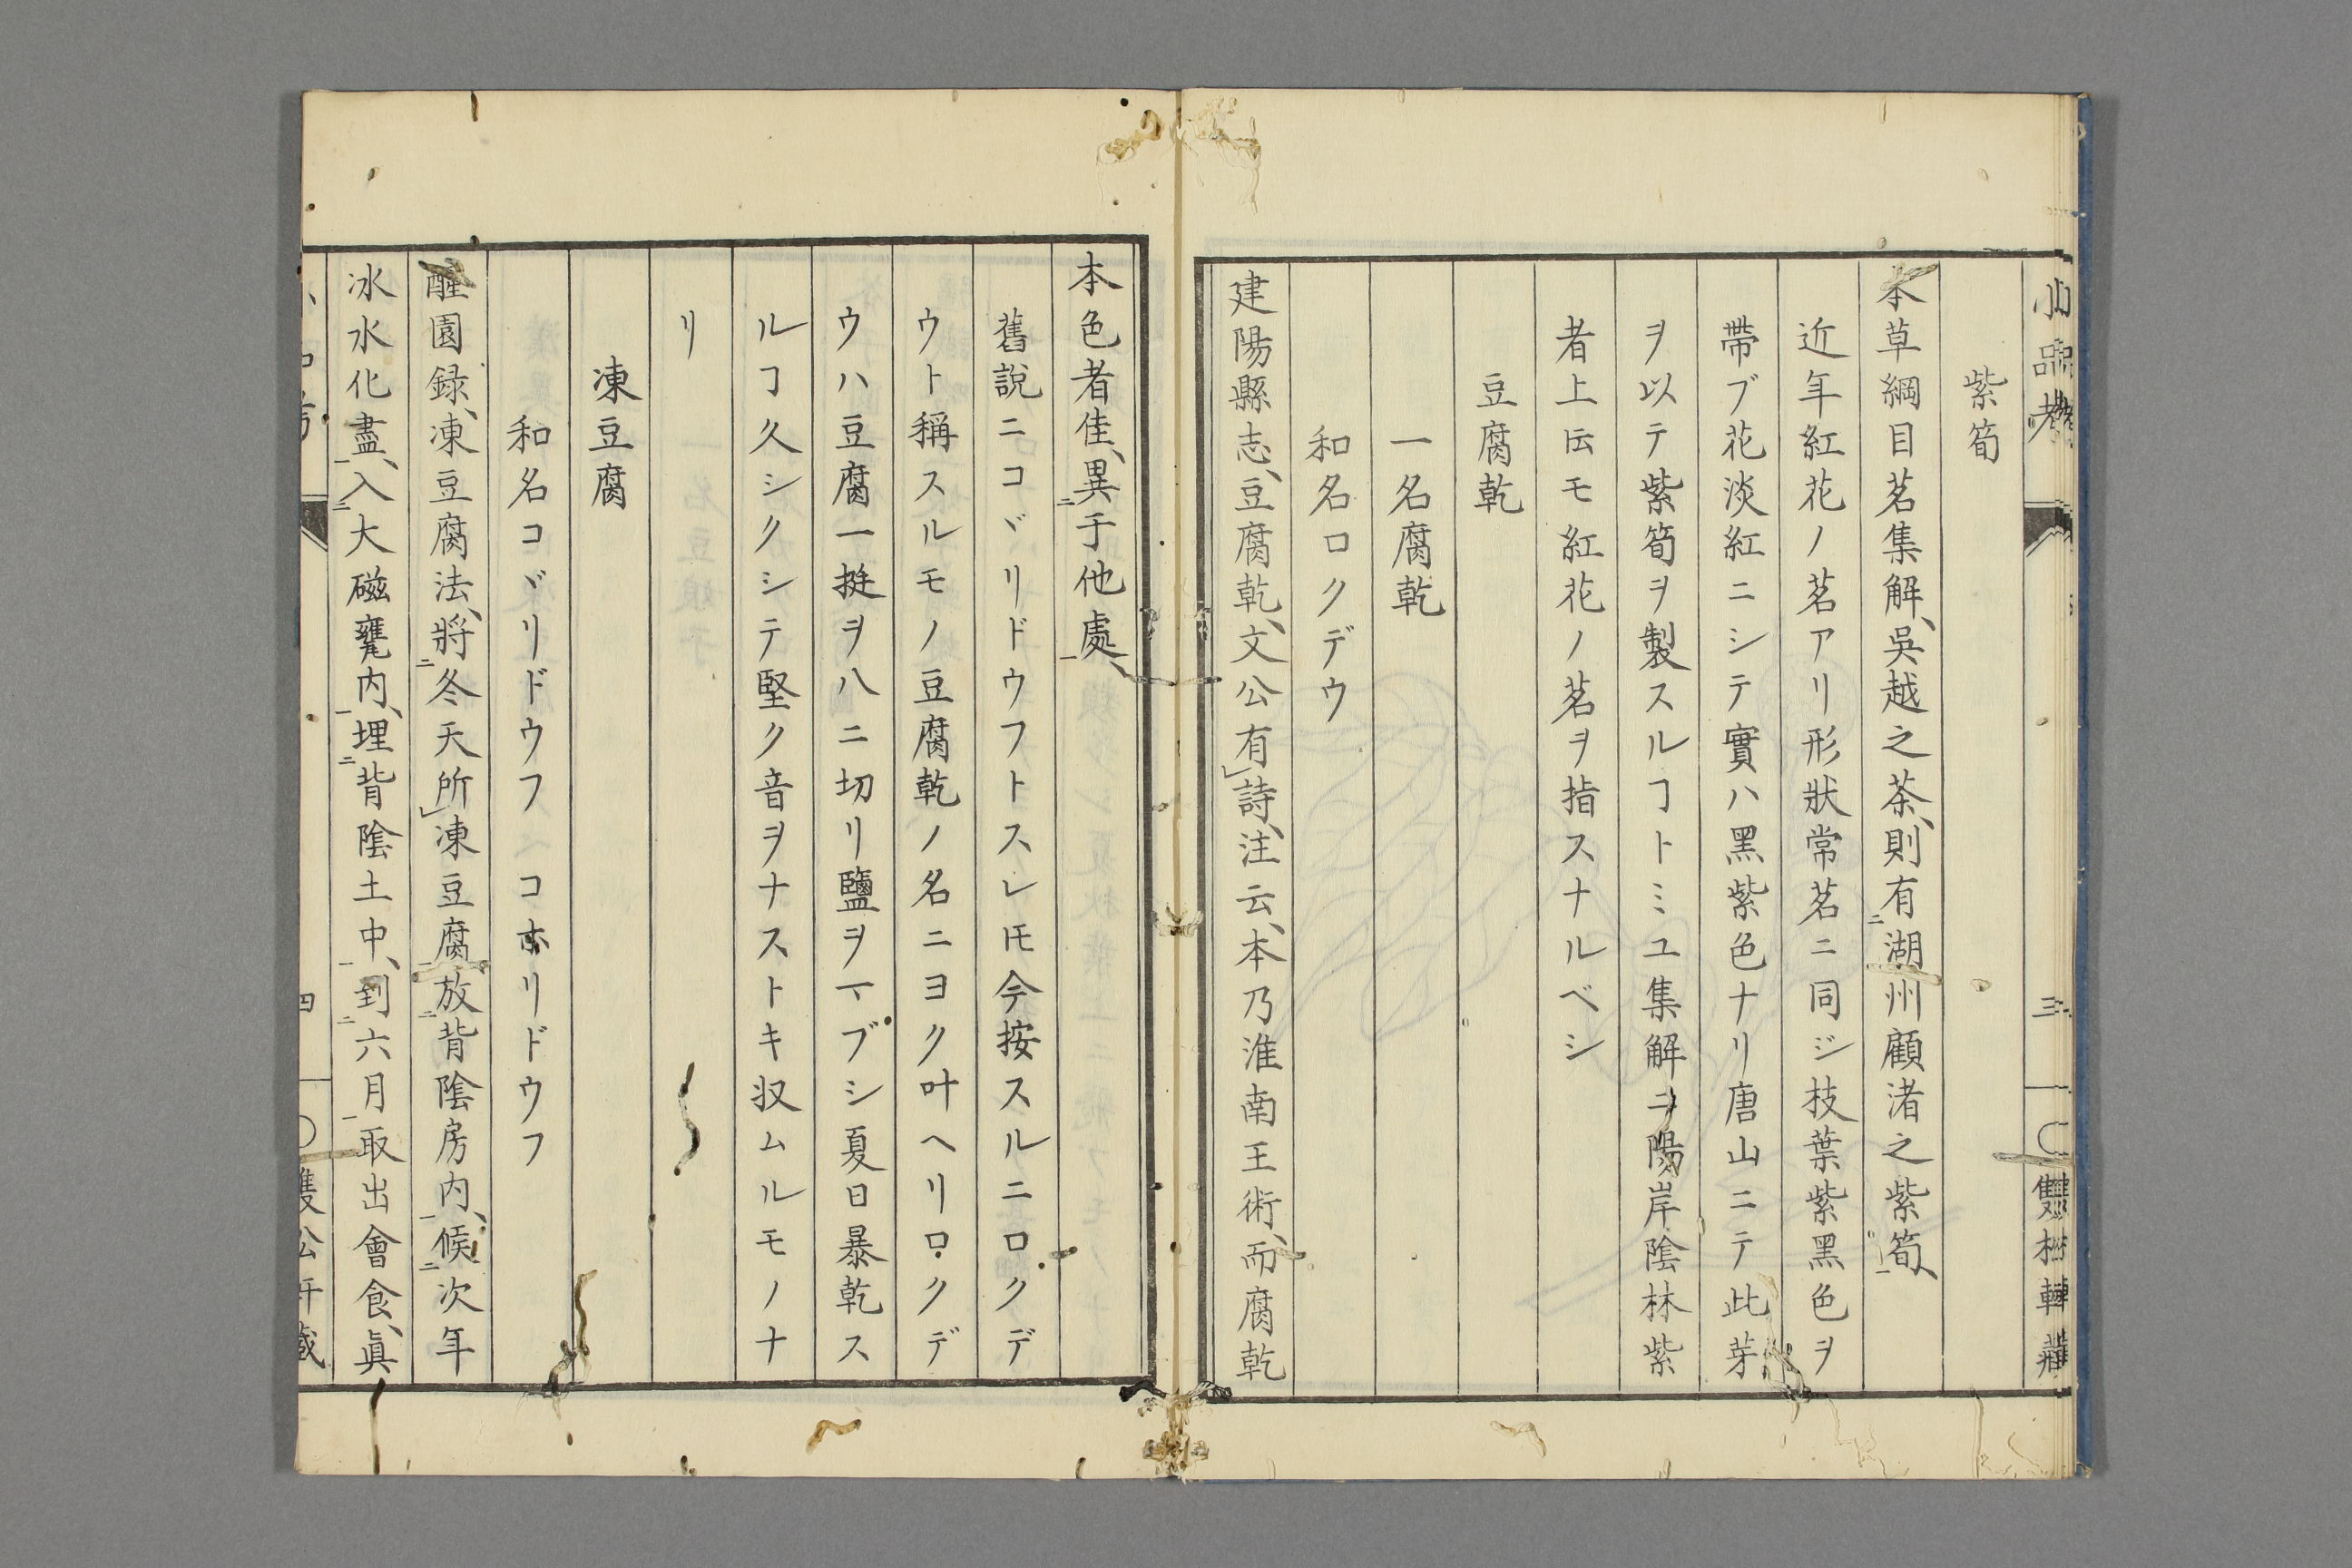 小品考
三
雙松軒藏
紫筍
本草綱目茗集解、吳越之茶、則有二湖州顧渚之紫筍一、
近年紅花ノ茗アリ形狀常茗ニ同ジ技葉紫黑色ヲ
帶ブ花淡紅ニシテ實ハ黑紫色ナリ唐山ニテ此芽
ヲ以テ紫筍ヲ製スルヿトミユ集解ニ陽岸陰林紫
者上𪜈モ紅花ノ茗ヲ指スナルベシ
豆腐乾
一名腐乾
和名ロクデウ
建陽縣志、豆腐乾、文公有レ詩、注云、本乃淮南王術、而腐乾
本色者佳、異二于他處一、
舊說ニコヾリドウフトスレ𪜈今按スルニロクデ
ウト稱スルモノ豆腐乾ノ名ニヨク叶ヘリロクデ
ウハ豆腐一挺ヲ八ニ切リ鹽ヲマブシ夏日暴乾ス
ルヿ久シクシテ堅ク音ヲナストキ収ムルモノナ
リ
凍豆腐
和名コヾリドウフ コホリドウフ
醒園録、凍豆腐法、將二冬天所レ凍豆腐一放二背陰房内一、候二次年
冰水化盡一、入二大磁甕内一、埋二背陰土中一、到二六月一取出會食、眞
四